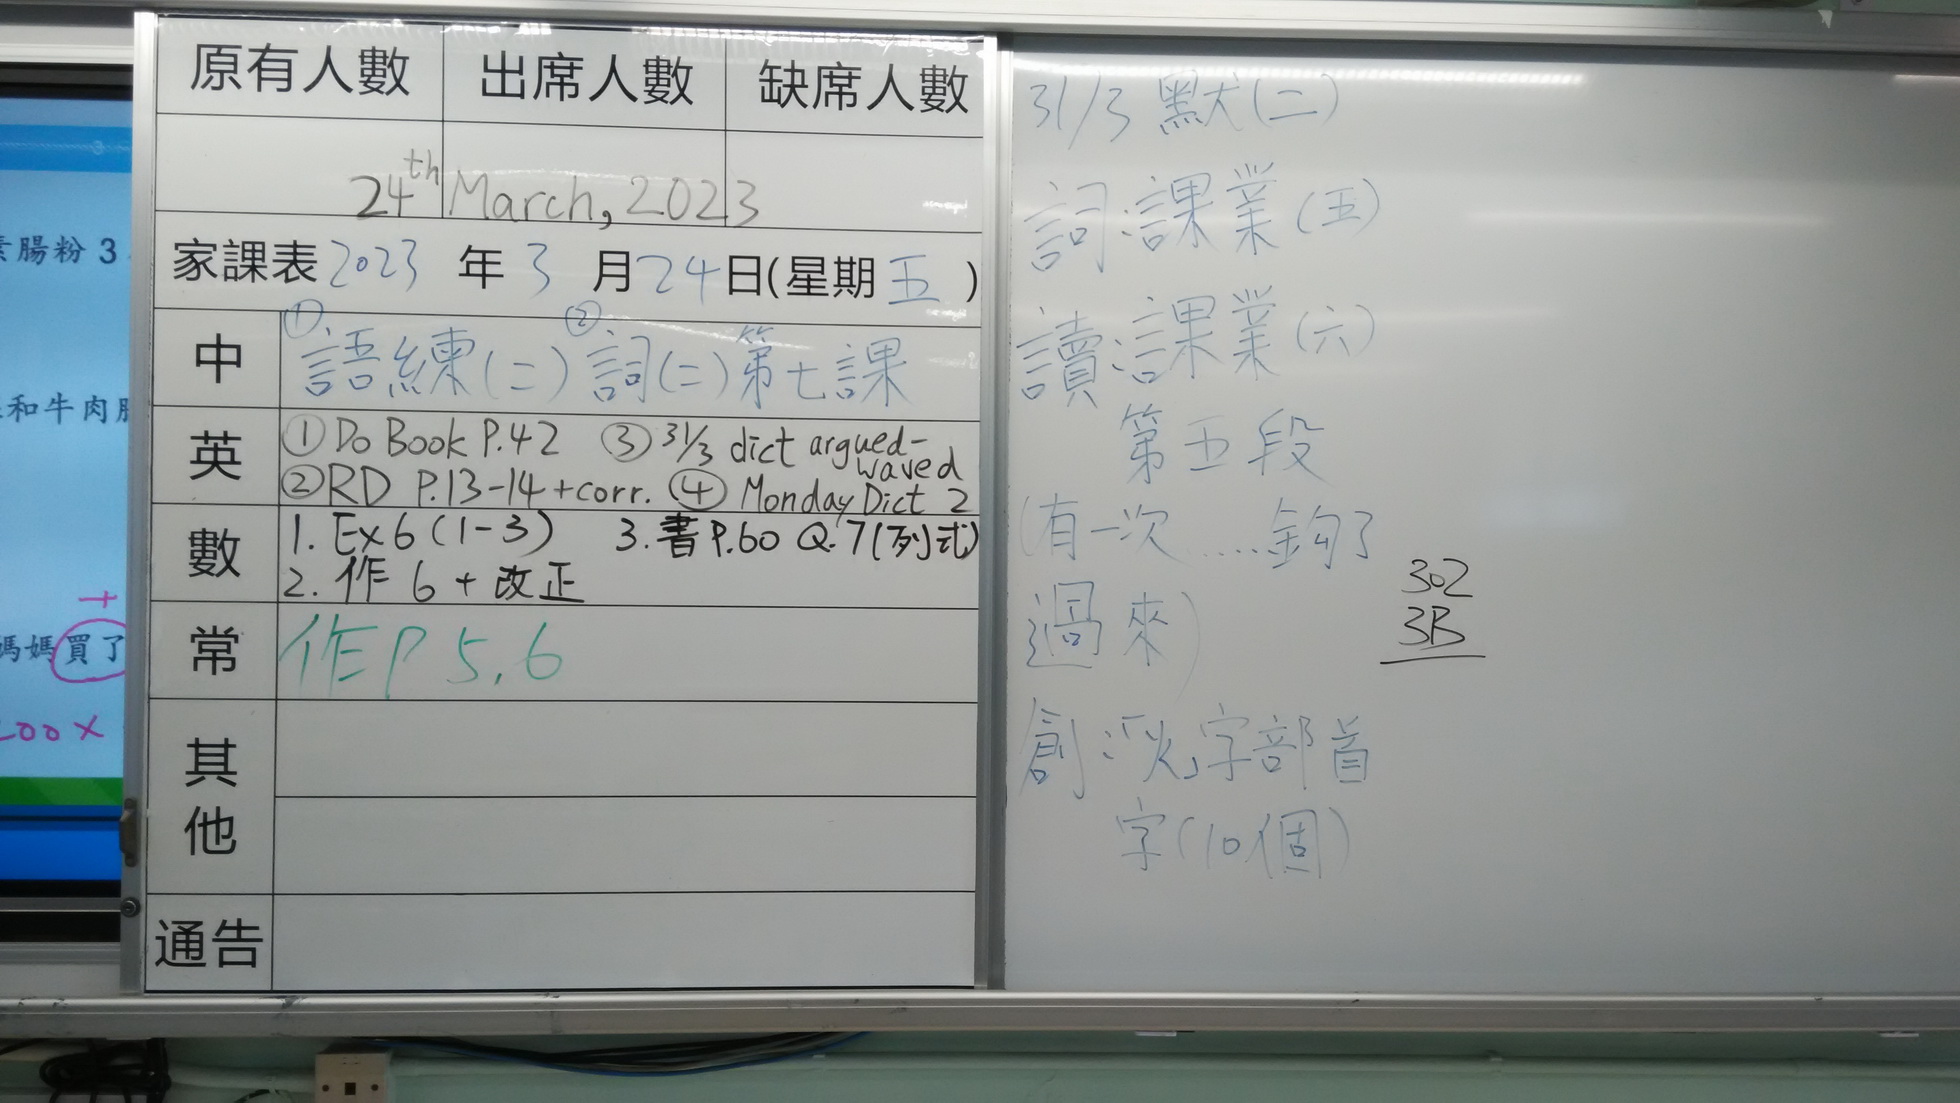 原有人數 出席人數 缺席人數
24th March, 2023
家課表 2023 年 3 月 24 日(星期 五 )
中 ①語練(二) ②詞(二)第七課
英 ① Do Book P.42 ③ 31/3 dict argued-waved
② RD P.13-14+corr. ④ Monday Dict 2
數 1. Ex6 (1-3) 3. 書 P.60 Q.7(列式)
2. 作 6 + 改正
常 作P 5,6
其他
通告
31/3 默(二)
詞:課業(五)
讀:課業(六)
第五段
(有一次……鉤了
過來)
創:「火」字部首
字(10個)
302
3B
腸粉 3
和牛肉
媽媽買了
+
200×